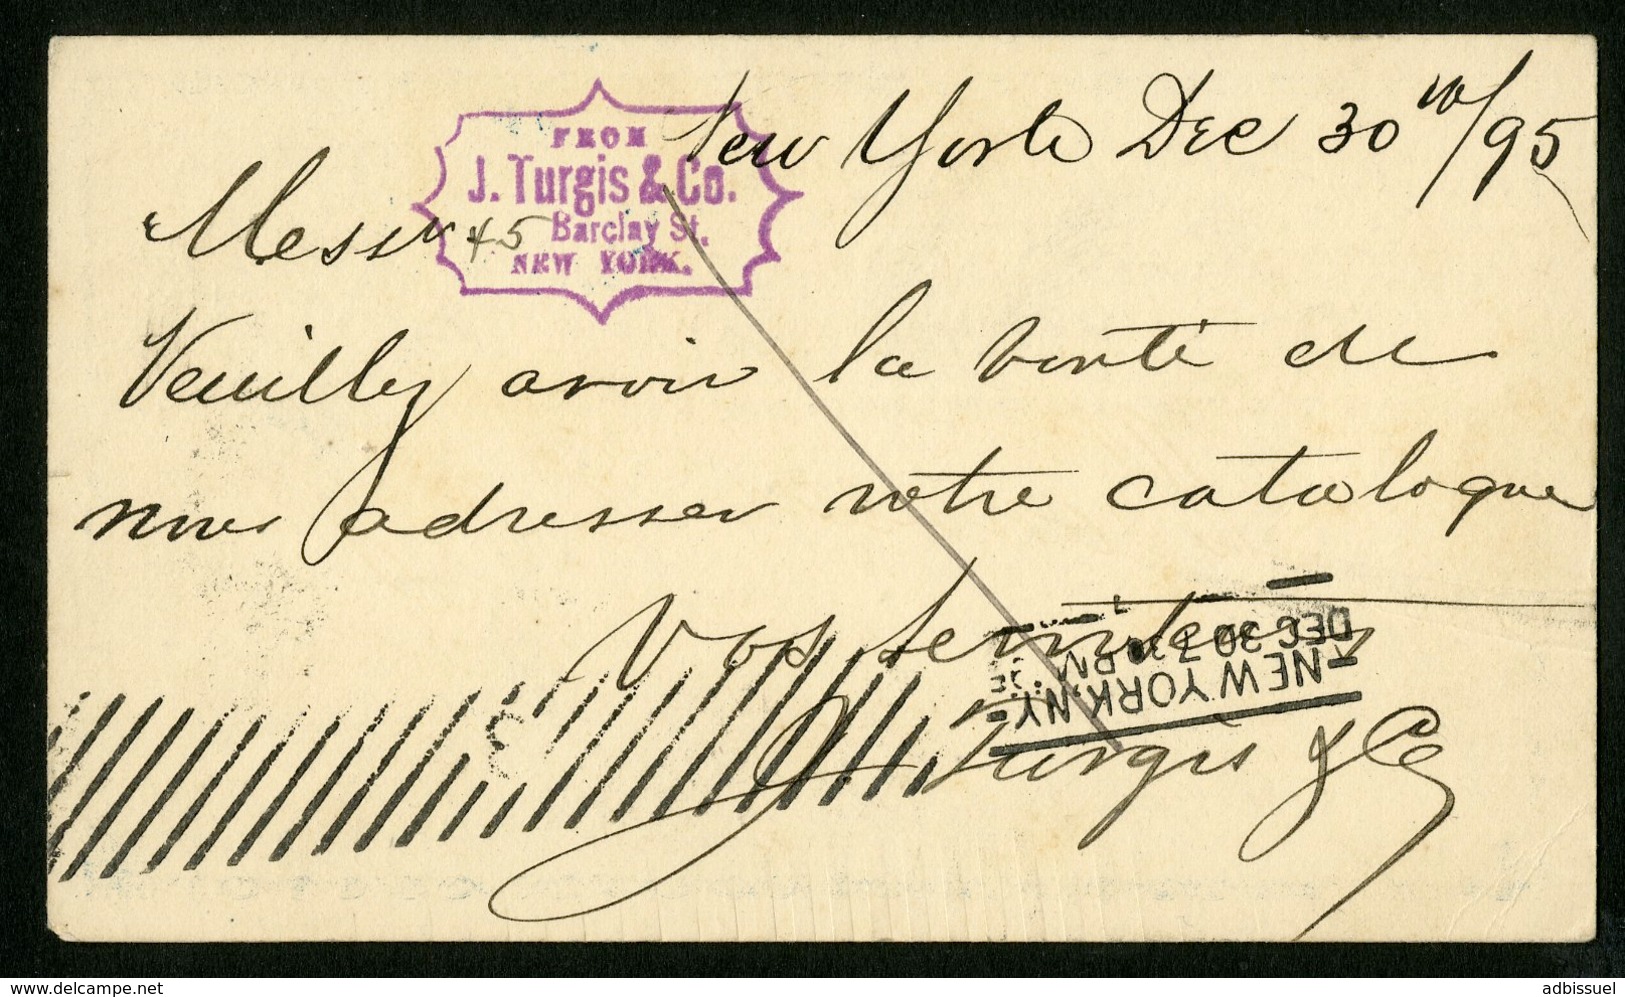 New York Dec 30th/95
FROM
J. Turgis & Co.
45 Barclay St.
NEW YORK.
Messrs
Veuillez avoir la bonté de
nous adresser votre catalogue
Vos serviteurs
J Turgis & Co
NEW YORK, N.Y.
DEC 30 7 30 PM
www.delcampe.net
adbissuel